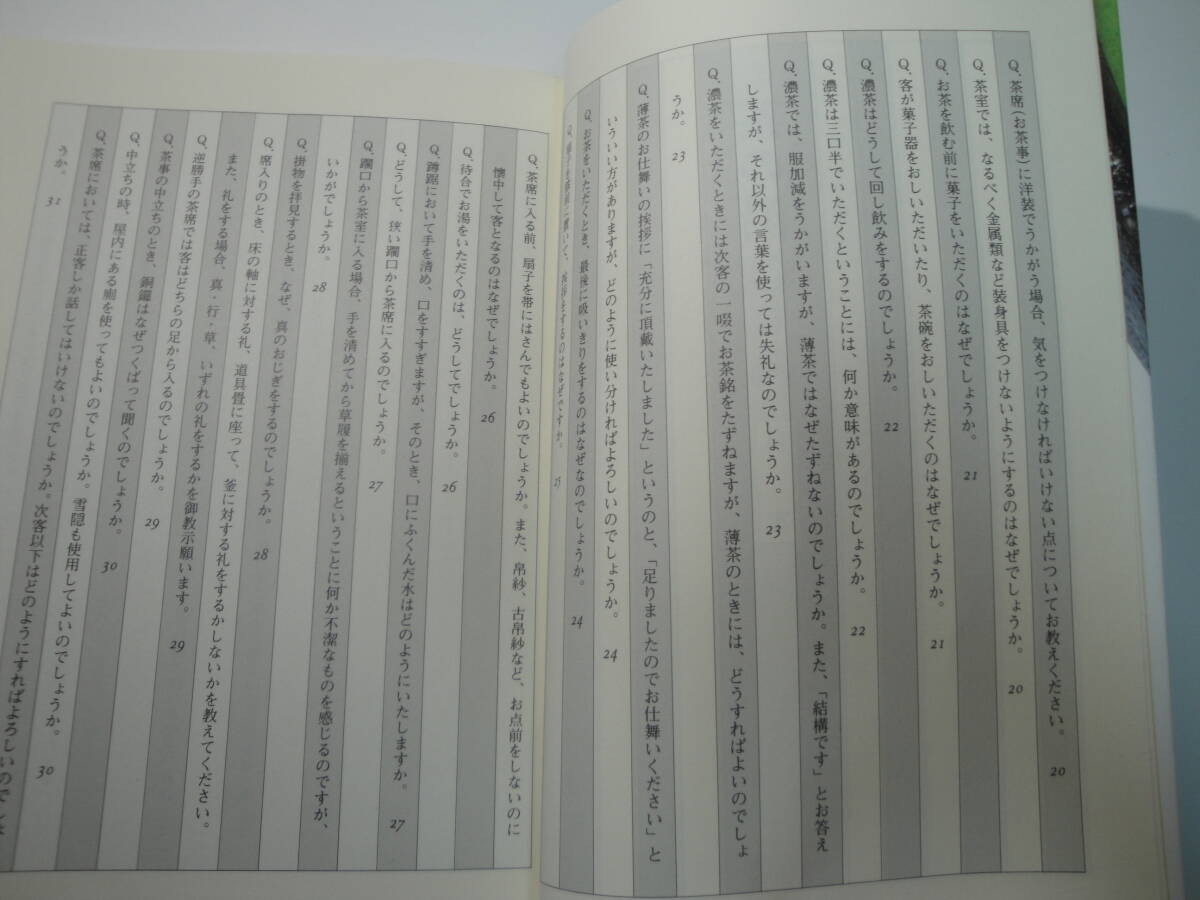 Q、茶席(お茶事)に洋装でうかがう場合、気をつけなければいけない点についてお教えください。 20
Q、茶室では、なるべく金属類など装身具をつけないようにするのはなぜでしょうか。 20
Q、お茶を飲む前に菓子をいただくのはなぜでしょうか。 21
Q、客が菓子器をおしいただいたり、茶碗をおしいただくのはなぜでしょうか。 21
Q、濃茶はどうして回し飲みをするのでしょうか。 22
Q、濃茶は三口半でいただくということには、何か意味があるのでしょうか。 22
Q、濃茶では、服加減をうかがいますが、薄茶ではなぜたずねないのでしょうか。また、「結構です」とお答え
しますが、それ以外の言葉を使っては失礼なのでしょうか。 23
Q、濃茶をいただくときには次客の一啜でお茶銘をたずねますが、薄茶のときには、どうすればよいのでしょ
うか。 23
Q、薄茶のお仕舞いの挨拶に「充分に頂戴いたしました」というのと、「足りましたのでお仕舞いください」と
いういい方がありますが、どのように使い分ければよろしいのでしょうか。 24
Q、お茶をいただくとき、最後に吸いきりをするのはなぜなのでしょうか。 24
Q、扇子を膝前に置いて、挨拶をするのはなぜですか。 25
Q、茶席に入る前、扇子を帯にはさんでもよいのでしょうか。また、帛紗、古帛紗など、お点前をしないのに
懐中して客となるのはなぜでしょうか。 26
Q、待合でお湯をいただくのは、どうしてでしょうか。 26
Q、蹲踞において手を清め、口をすすぎますが、そのとき、口にふくんだ水はどのようにいたしますか。 27
Q、どうして、狭い躙口から茶席に入るのでしょうか。 27
Q、躙口から茶室に入る場合、手を清めてから草履を揃えるということに何か不潔なものを感じるのですが、
いかがでしょうか。 28
Q、掛物を拝見するとき、なぜ、真のおじぎをするのでしょうか。 28
Q、席入りのとき、床の軸に対する礼、道具畳に座って、釜に対する礼をするかしないかを教えてください。
また、礼をする場合、真・行・草、いずれの礼をするかを御教示願います。 29
Q、逆勝手の茶席では客はどちらの足から入るのでしょうか。 29
Q、茶事の中立ちのとき、銅鑼はなぜつくばって聞くのでしょうか。 30
Q、中立ちの時、屋内にある廁を使ってもよいのでしょうか。雪隠も使用してよいのでしょうか。 30
Q、茶席においては、正客しか話してはいけないのでしょうか。次客以下はどのようにすればよろしいのでしょ
うか。 31